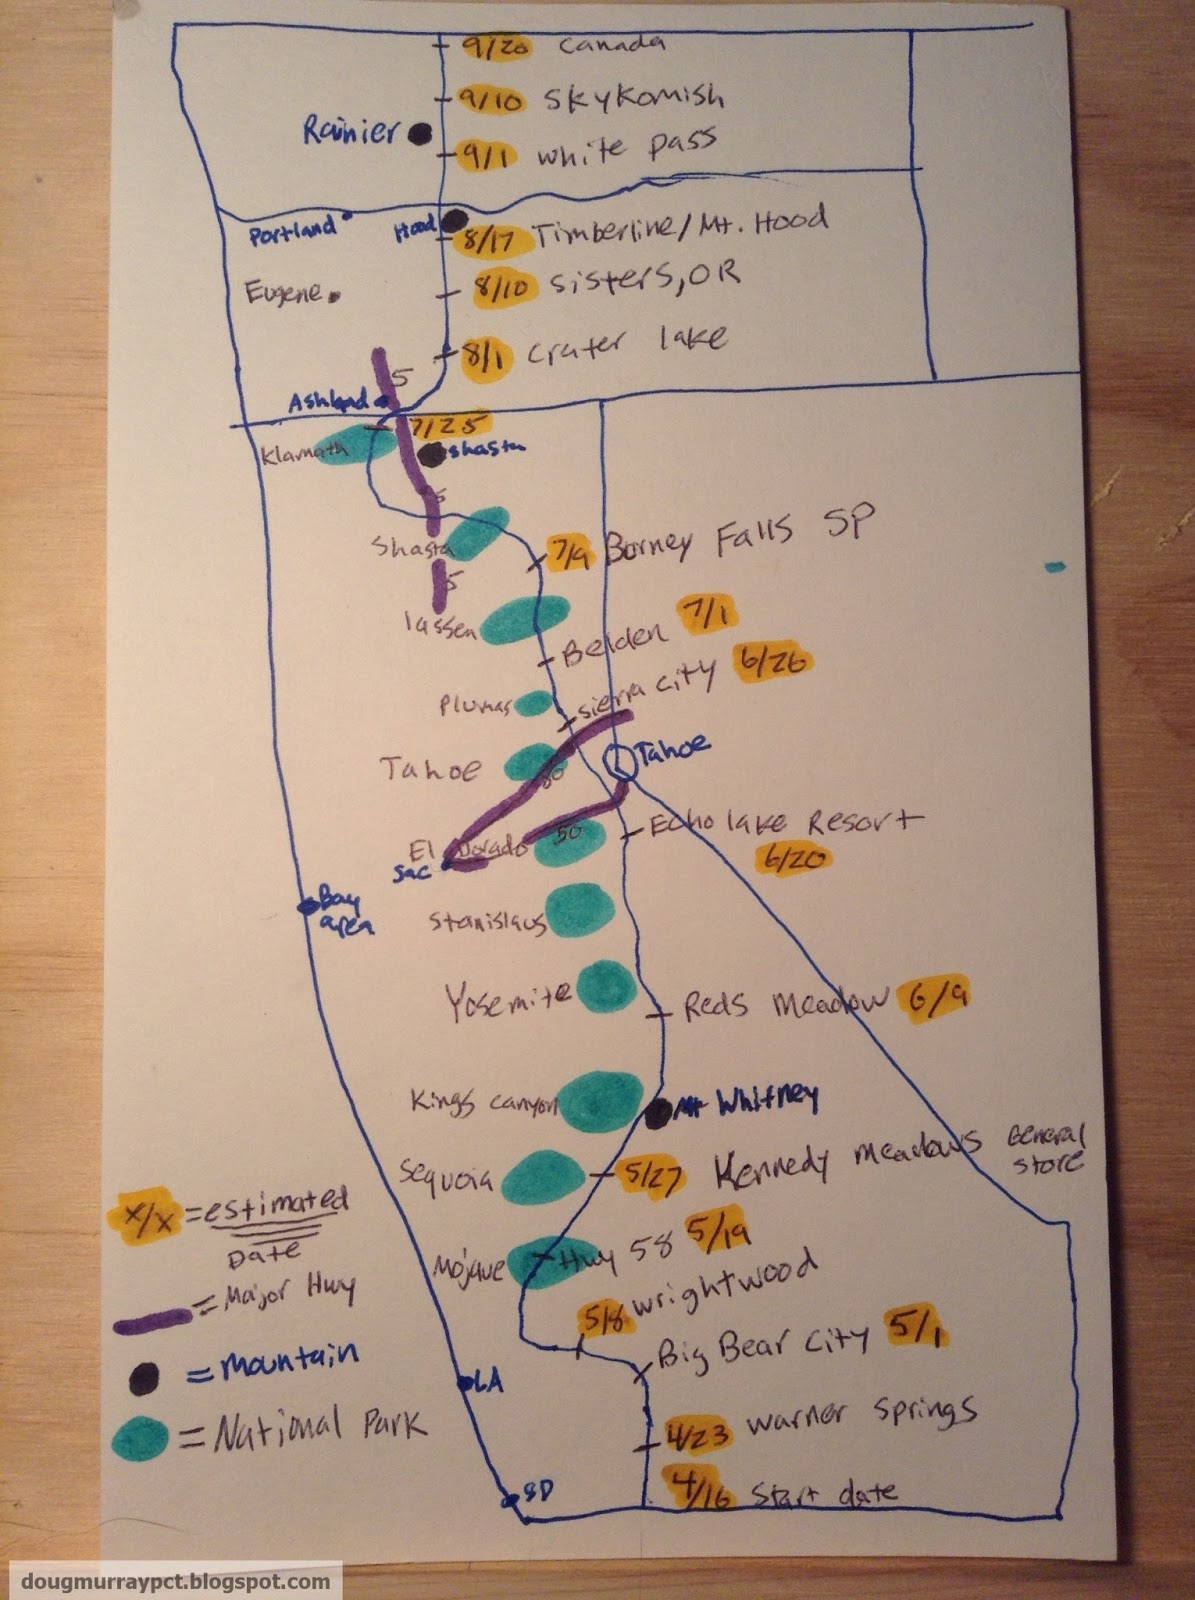 9/20 Canada
9/10 Skykomish
Rainier
9/1 White pass
Portland
Hood
8/17 Timberline/Mt. Hood
Eugene
8/10 Sisters, OR
8/1 Crater lake
5
Ashland
7/25
Klamath
Shasta
5
Shasta
7/9 Borney Falls SP
5
lassen
Belden 7/1
Sierra city 6/26
Plumas
Tahoe
Tahoe
80
Echo lake Resort
6/20
El Dorado
50
Sac
Bay
area
Stanislaus
Yosemite
Reds Meadow 6/9
Kings canyon
Mt Whitney
Sequoia
5/27 Kennedy Meadows General
store
x/x = estimated
Date
Hwy 58 5/19
Mojave
= Major Hwy
5/8 Wrightwood
Big Bear City 5/1
= Mountain
LA
= National Park
4/23 Warner Springs
SD
4/16 Start date
dougmurraypct.blogspot.com